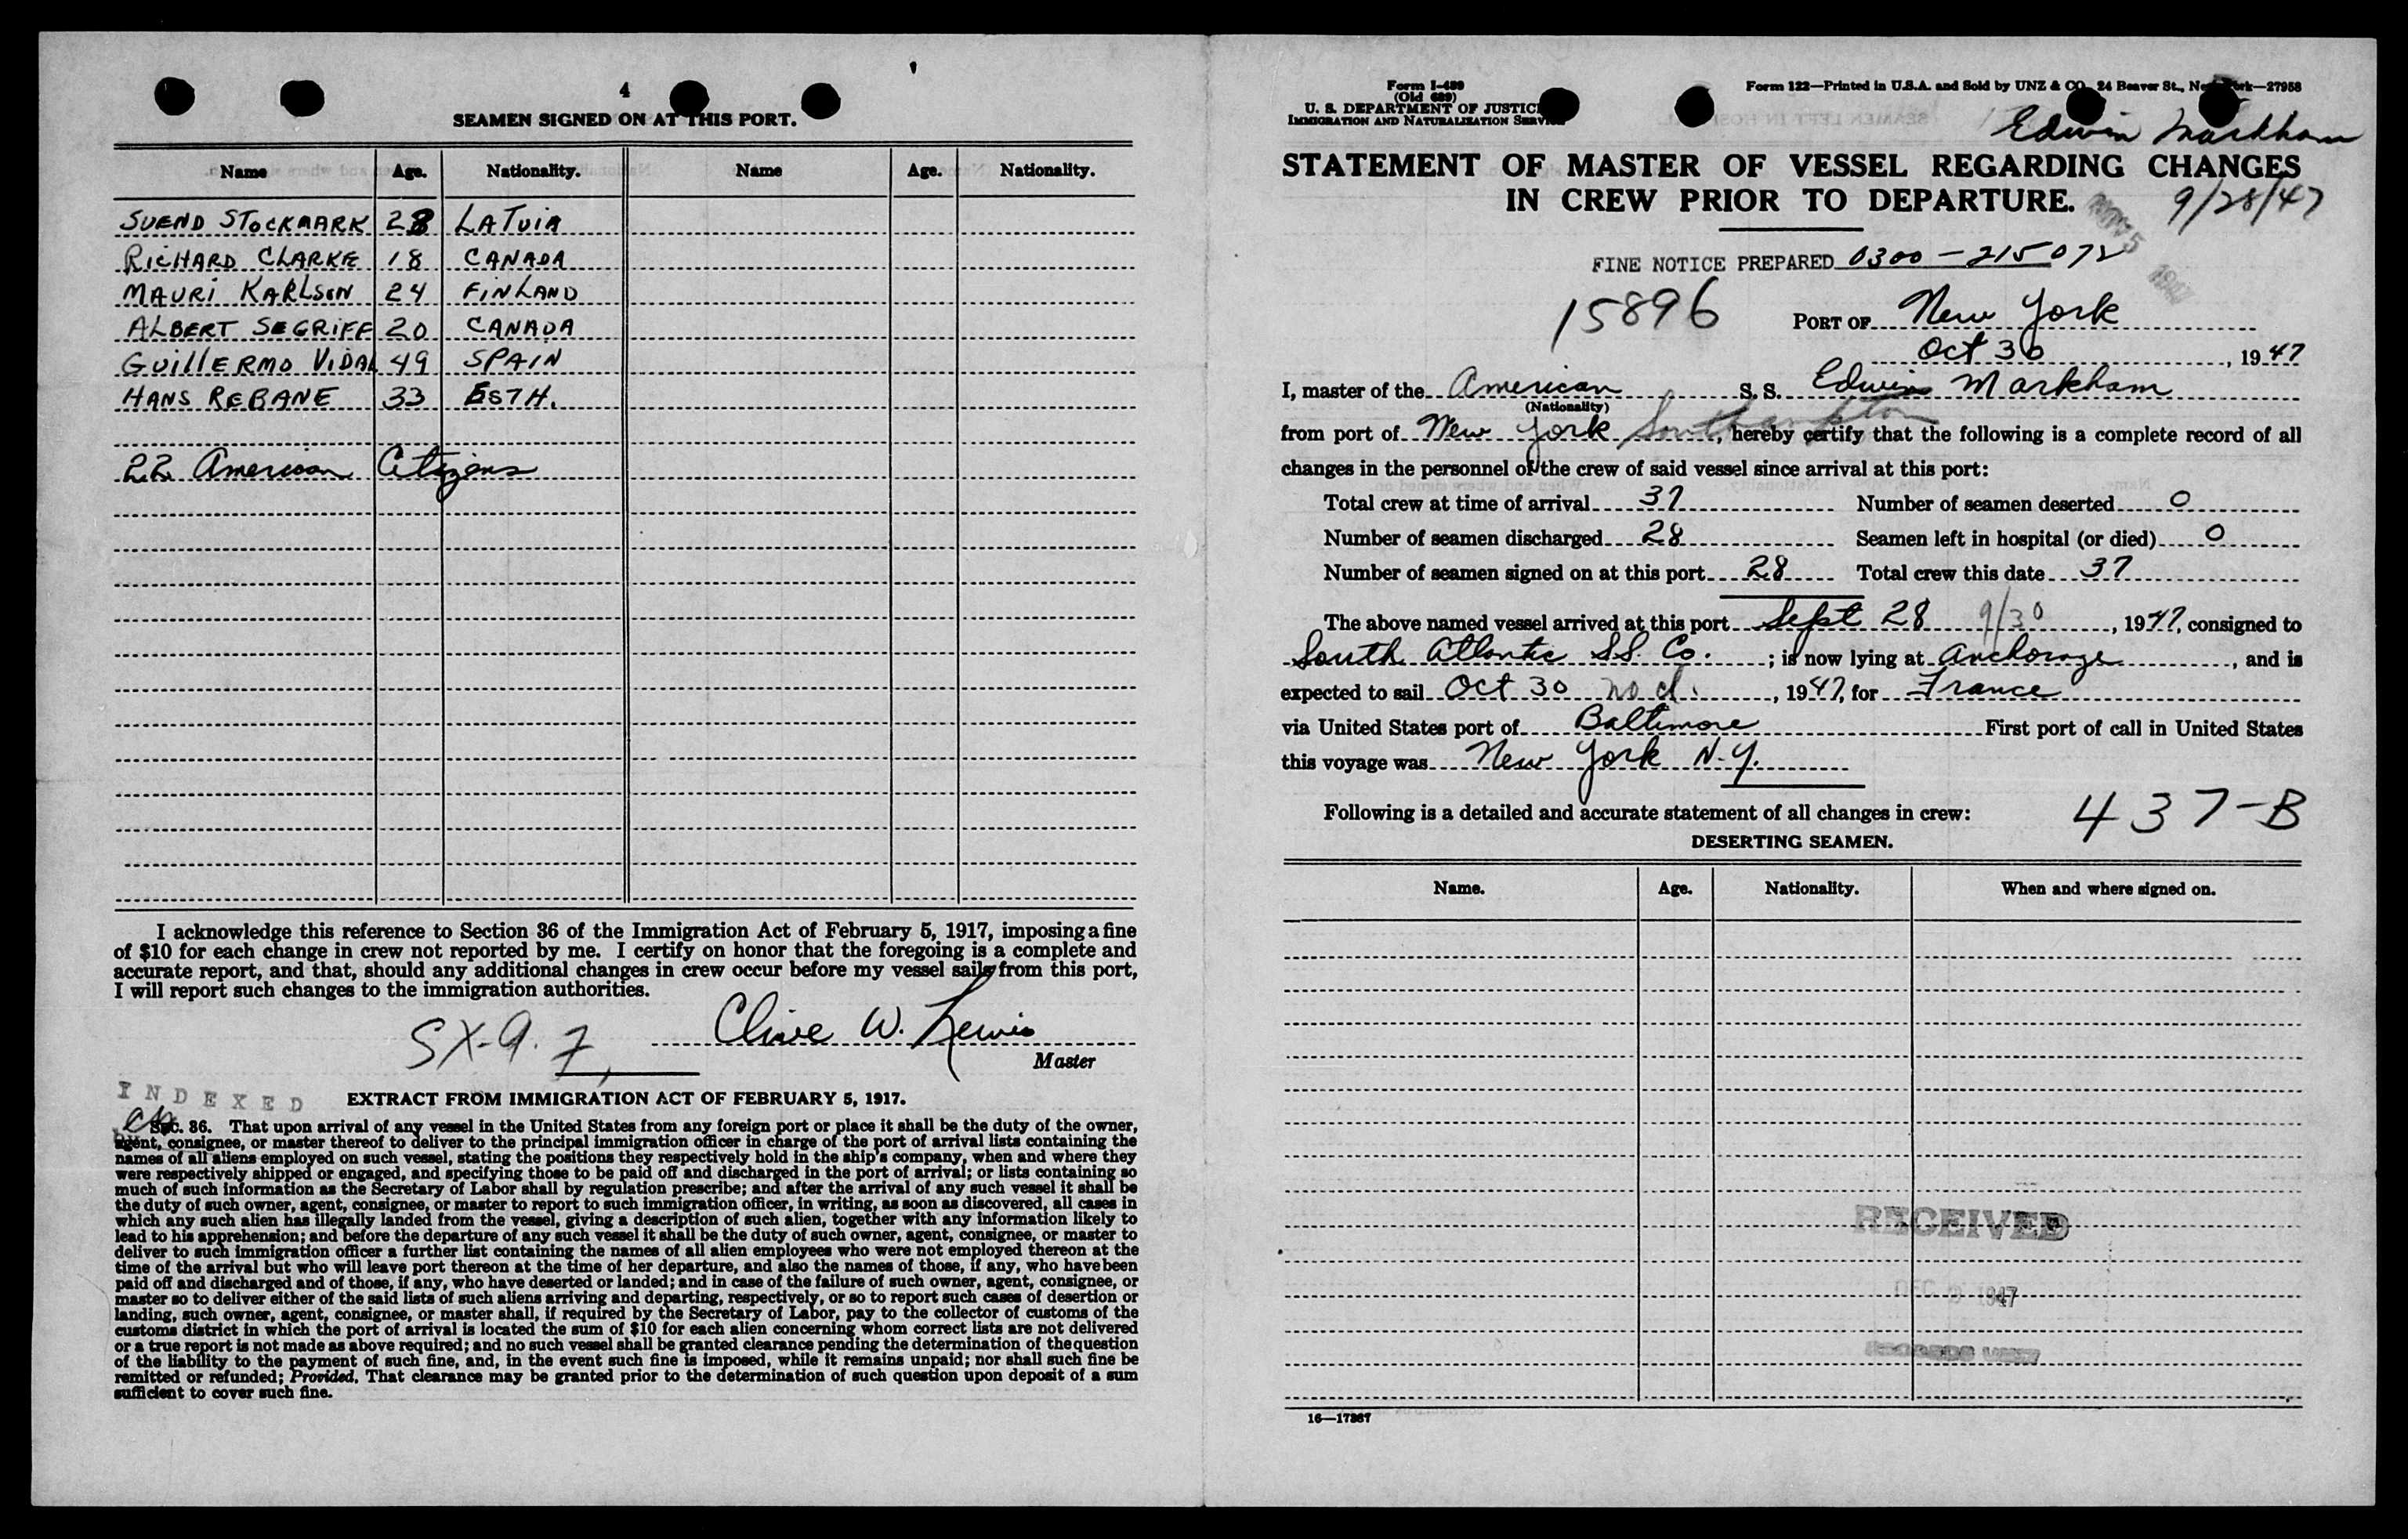 4
SEAMEN SIGNED ON AT THIS PORT.
Name Age. Nationality. Name Age. Nationality.
SVEND STOCKMARK 28 LATVIA
RICHARD CLARKE 18 CANADA
MAURI KARLSON 24 FINLAND
ALBERT SEGRIFF 20 CANADA
GUILLERMO VIDAL 49 SPAIN
HANS REBANE 33 ESTH.
22 American Citizens
I acknowledge this reference to Section 36 of the Immigration Act of February 5, 1917, imposing a fine
of $10 for each change in crew not reported by me. I certify on honor that the foregoing is a complete and
accurate report, and that, should any additional changes in crew occur before my vessel sails from this port,
I will report such changes to the immigration authorities.
SX-9.7, Clive W. Lewis
Master
INDEXED
EXTRACT FROM IMMIGRATION ACT OF FEBRUARY 5, 1917.
Sec. 36. That upon arrival of any vessel in the United States from any foreign port or place it shall be the duty of the owner,
agent, consignee, or master thereof to deliver to the principal immigration officer in charge of the port of arrival lists containing the
names of all aliens employed on such vessel, stating the positions they respectively hold in the ship's company, when and where they
were respectively shipped or engaged, and specifying those to be paid off and discharged in the port of arrival; or lists containing so
much of such information as the Secretary of Labor shall by regulation prescribe; and after the arrival of any such vessel it shall be
the duty of such owner, agent, consignee, or master to report to such immigration officer, in writing, as soon as discovered, all cases in
which any such alien has illegally landed from the vessel, giving a description of such alien, together with any information likely to
lead to his apprehension; and before the departure of any such vessel it shall be the duty of such owner, agent, consignee, or master to
deliver to such immigration officer a further list containing the names of all alien employees who were not employed thereon at the
time of the arrival but who will leave port thereon at the time of her departure, and also the names of those, if any, who have been
paid off and discharged and of those, if any, who have deserted or landed; and in case of the failure of such owner, agent, consignee, or
master so to deliver either of the said lists of such aliens arriving and departing, respectively, or so to report such cases of desertion or
landing, such owner, agent, consignee, or master shall, if required by the Secretary of Labor, pay to the collector of customs of the
customs district in which the port of arrival is located the sum of $10 for each alien concerning whom correct lists are not delivered
or a true report is not made as above required; and no such vessel shall be granted clearance pending the determination of the question
of the liability to the payment of such fine, and, in the event such fine is imposed, while it remains unpaid; nor shall such fine be
remitted or refunded; Provided, That clearance may be granted prior to the determination of such question upon deposit of a sum
sufficient to cover such fine.
Form I-489
(Old 689)
U. S. DEPARTMENT OF JUSTICE
IMMIGRATION AND NATURALIZATION SERVICE
Form 122—Printed in U.S.A. and Sold by UNZ & CO., 24 Beaver St., New York—27958
Edwin Markham
STATEMENT OF MASTER OF VESSEL REGARDING CHANGES
IN CREW PRIOR TO DEPARTURE.
9/28/47
NOV 5 1947
FINE NOTICE PREPARED 0300-215072
15896
PORT OF New York
Oct 30, 1947
I, master of the American S. S. Edwin Markham
(Nationality)
from port of New York Southampton, hereby certify that the following is a complete record of all
changes in the personnel of the crew of said vessel since arrival at this port:
Total crew at time of arrival 37 Number of seamen deserted 0
Number of seamen discharged 28 Seamen left in hospital (or died) 0
Number of seamen signed on at this port 28 Total crew this date 37
The above named vessel arrived at this port Sept 28 9/30, 1947, consigned to
South Atlantic S.S. Co.; is now lying at Anchorage, and is
expected to sail Oct 30 no d., 1947, for France
via United States port of Baltimore First port of call in United States
this voyage was New York N.Y.
Following is a detailed and accurate statement of all changes in crew:
437-B
DESERTING SEAMEN.
Name. Age. Nationality. When and where signed on.
RECEIVED
DEC 1947
RECORDS UNIT
16—17367